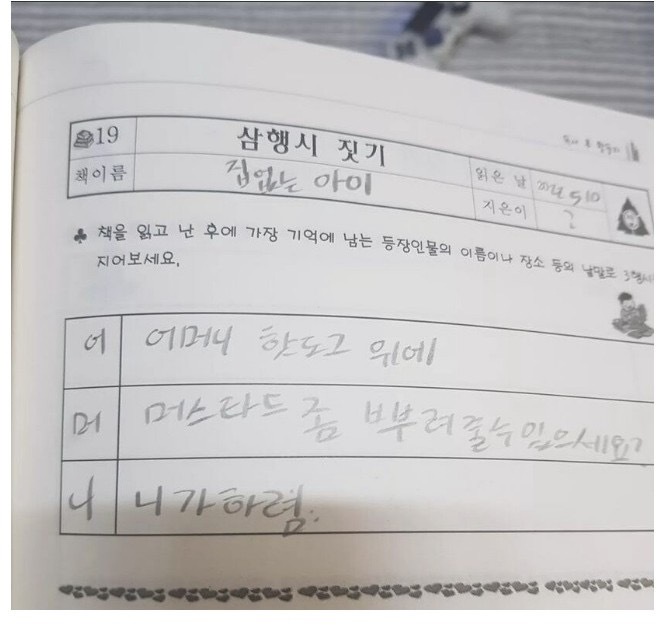 19 삼행시 짓기
책이름 집없는 아이
읽은 날
지은이 ?
♣ 책을 읽고 난 후에 가장 기억에 남는 등장인물의 이름이나 장소 등의 낱말로 3행시
지어보세요.
어 어머니 핫도그 위에
머 머스타드 좀 뿌러줄수 있으세요?
니 니가하렴.